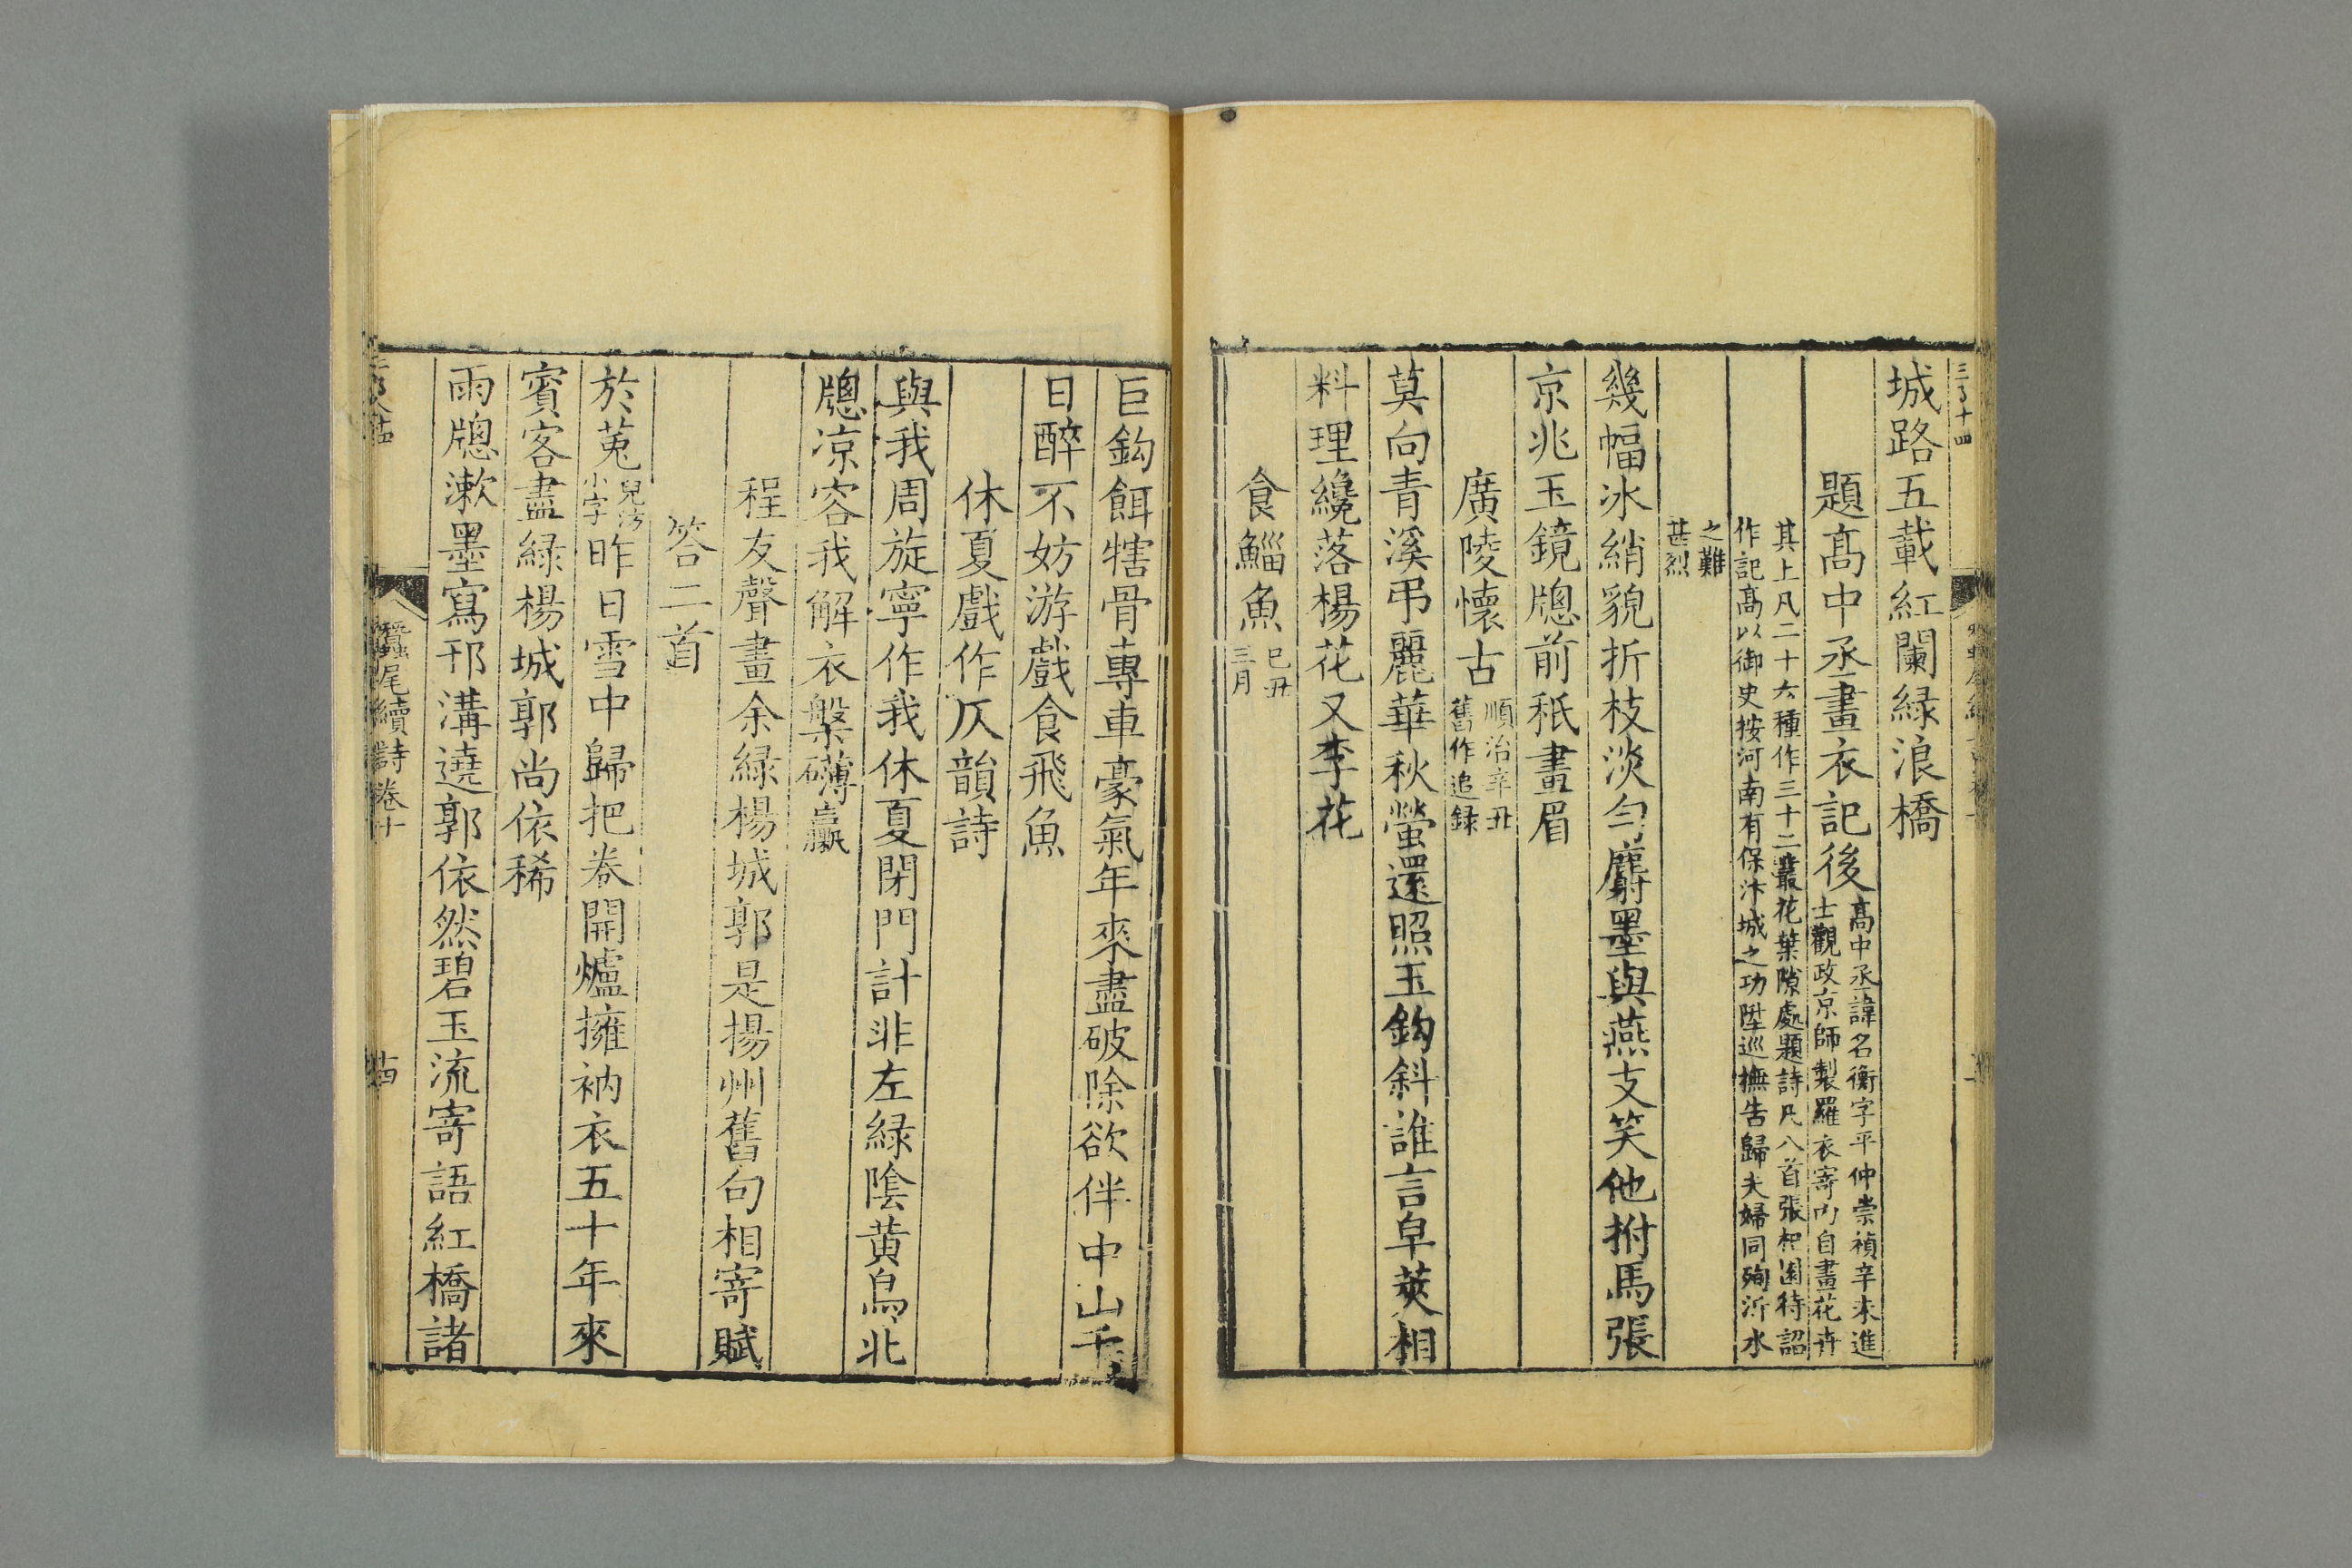 城路五載紅闌緑浪橋
題高中丞畫衣記後
高中丞諱名衡字平仲崇禎辛未進
士觀政京師製羅衣寄內自畫花卉
其上凡二十六種作三十二叢花葉隙處題詩凡八首張杞園待詔
作記高以御史按河南有保汴城之功陞巡撫告歸夫婦同殉沂水
之難
甚烈
幾幅冰綃貌折枝淡勻麝墨與燕支笑他拊馬張
京兆玉鏡牕前秖畫眉
廣陵懷古
順治辛丑
舊作追録
莫向青溪弔麗華秋螢還照玉鈎斜誰言皁莢相
料理纔落楊花又李花
食鯔魚
己丑
三月
巨鈎餌犗骨專車豪氣年來盡破除欲伴中山千
日醉不妨游戲食飛魚
休夏戲作仄韻詩
與我周旋寧作我休夏閉門計非左緑陰黄鳥北
牕凉容我解衣槃礴臝
程友聲畫余緑楊城郭是揚州舊句相寄賦
答二首
於菟
兒汸
小字
昨日雪中歸把卷開爐擁衲衣五十年來
賓客盡緑楊城郭尚依稀
雨牕漱墨寫邗溝遶郭依然碧玉流寄語紅橋諸
蠶尾續詩卷十
十四